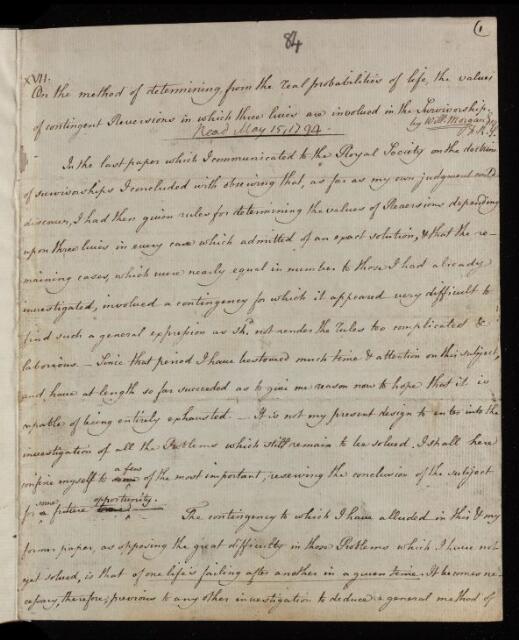 1
84
XVII.
On the method of determining, from the real probabilities of life, the values
of contingent Reversions in which three lives are involved in the Survivorship.
by Will. Morgan Esq
F.R.S.
Read May 15, 1794.
In the last paper which I communicated to the Royal Society on the doctrine
of survivorships I concluded with observing that, as far as my own judgment could
discover, I had then given rules for determining the values of Reversions depending
upon three lives in every case which admitted of an exact solution, & that the re-
maining cases, which were nearly equal in number to those I had already
investigated, involved a contingency for which it appeared very difficult to
find such a general expression as shd. not render the rules too complicated &
laborious. — Since that period I have bestowed much time & attention on this subject,
and have at length so far succeeded as to give me reason now to hope that it is
capable of being entirely exhausted. — It is not my present design to enter into the
investigation of all the Problems which still remain to be solved. I shall here
confine myself to a few of the most important, reserving the conclusion of the subject
for some future opportunity.
The contingency to which I have alluded in this & my
former paper, as opposing the great difficulty in those Problems which I have not
yet solved, is that of one life's failing after another in a given time. It becomes ne-
cessary, therefore, previous to any other investigation to deduce a general method of